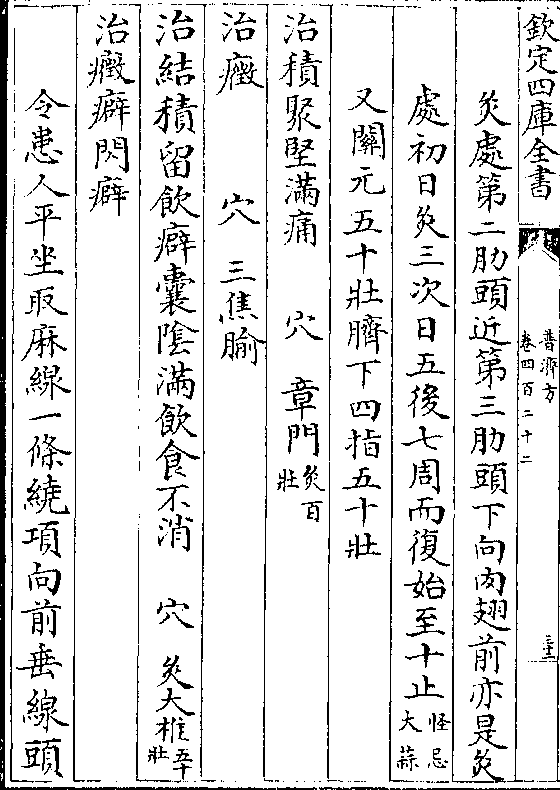 欽定四庫全書
普濟方
卷四百二十二
灸處第二肋頭近第三肋頭下向肉翅前亦是灸
處初日灸三次日五後七周而復始至十止惟忌大蒜
又關元五十壯臍下四指五十壯
治積聚堅滿痛　穴　章門灸百壯
治癥　穴　三焦腧
治結積留飲癖囊陰滿飲食不消　穴　灸大椎五十壯
治癥癖閃癖
令患人平坐取麻線一條繞項向前垂線頭